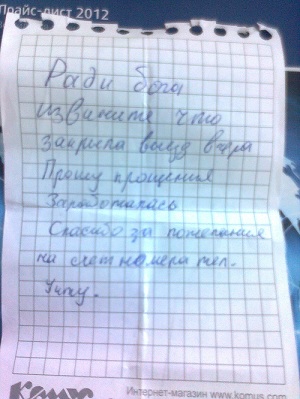 Прайс-лист 2012
Ради бога
извините что
закрыла выезд
Прошу прощения
Заработалась
Спасибо за пожелания
на счет номера тел.
Учту.
Комус
Интернет-магазин www.komus.com